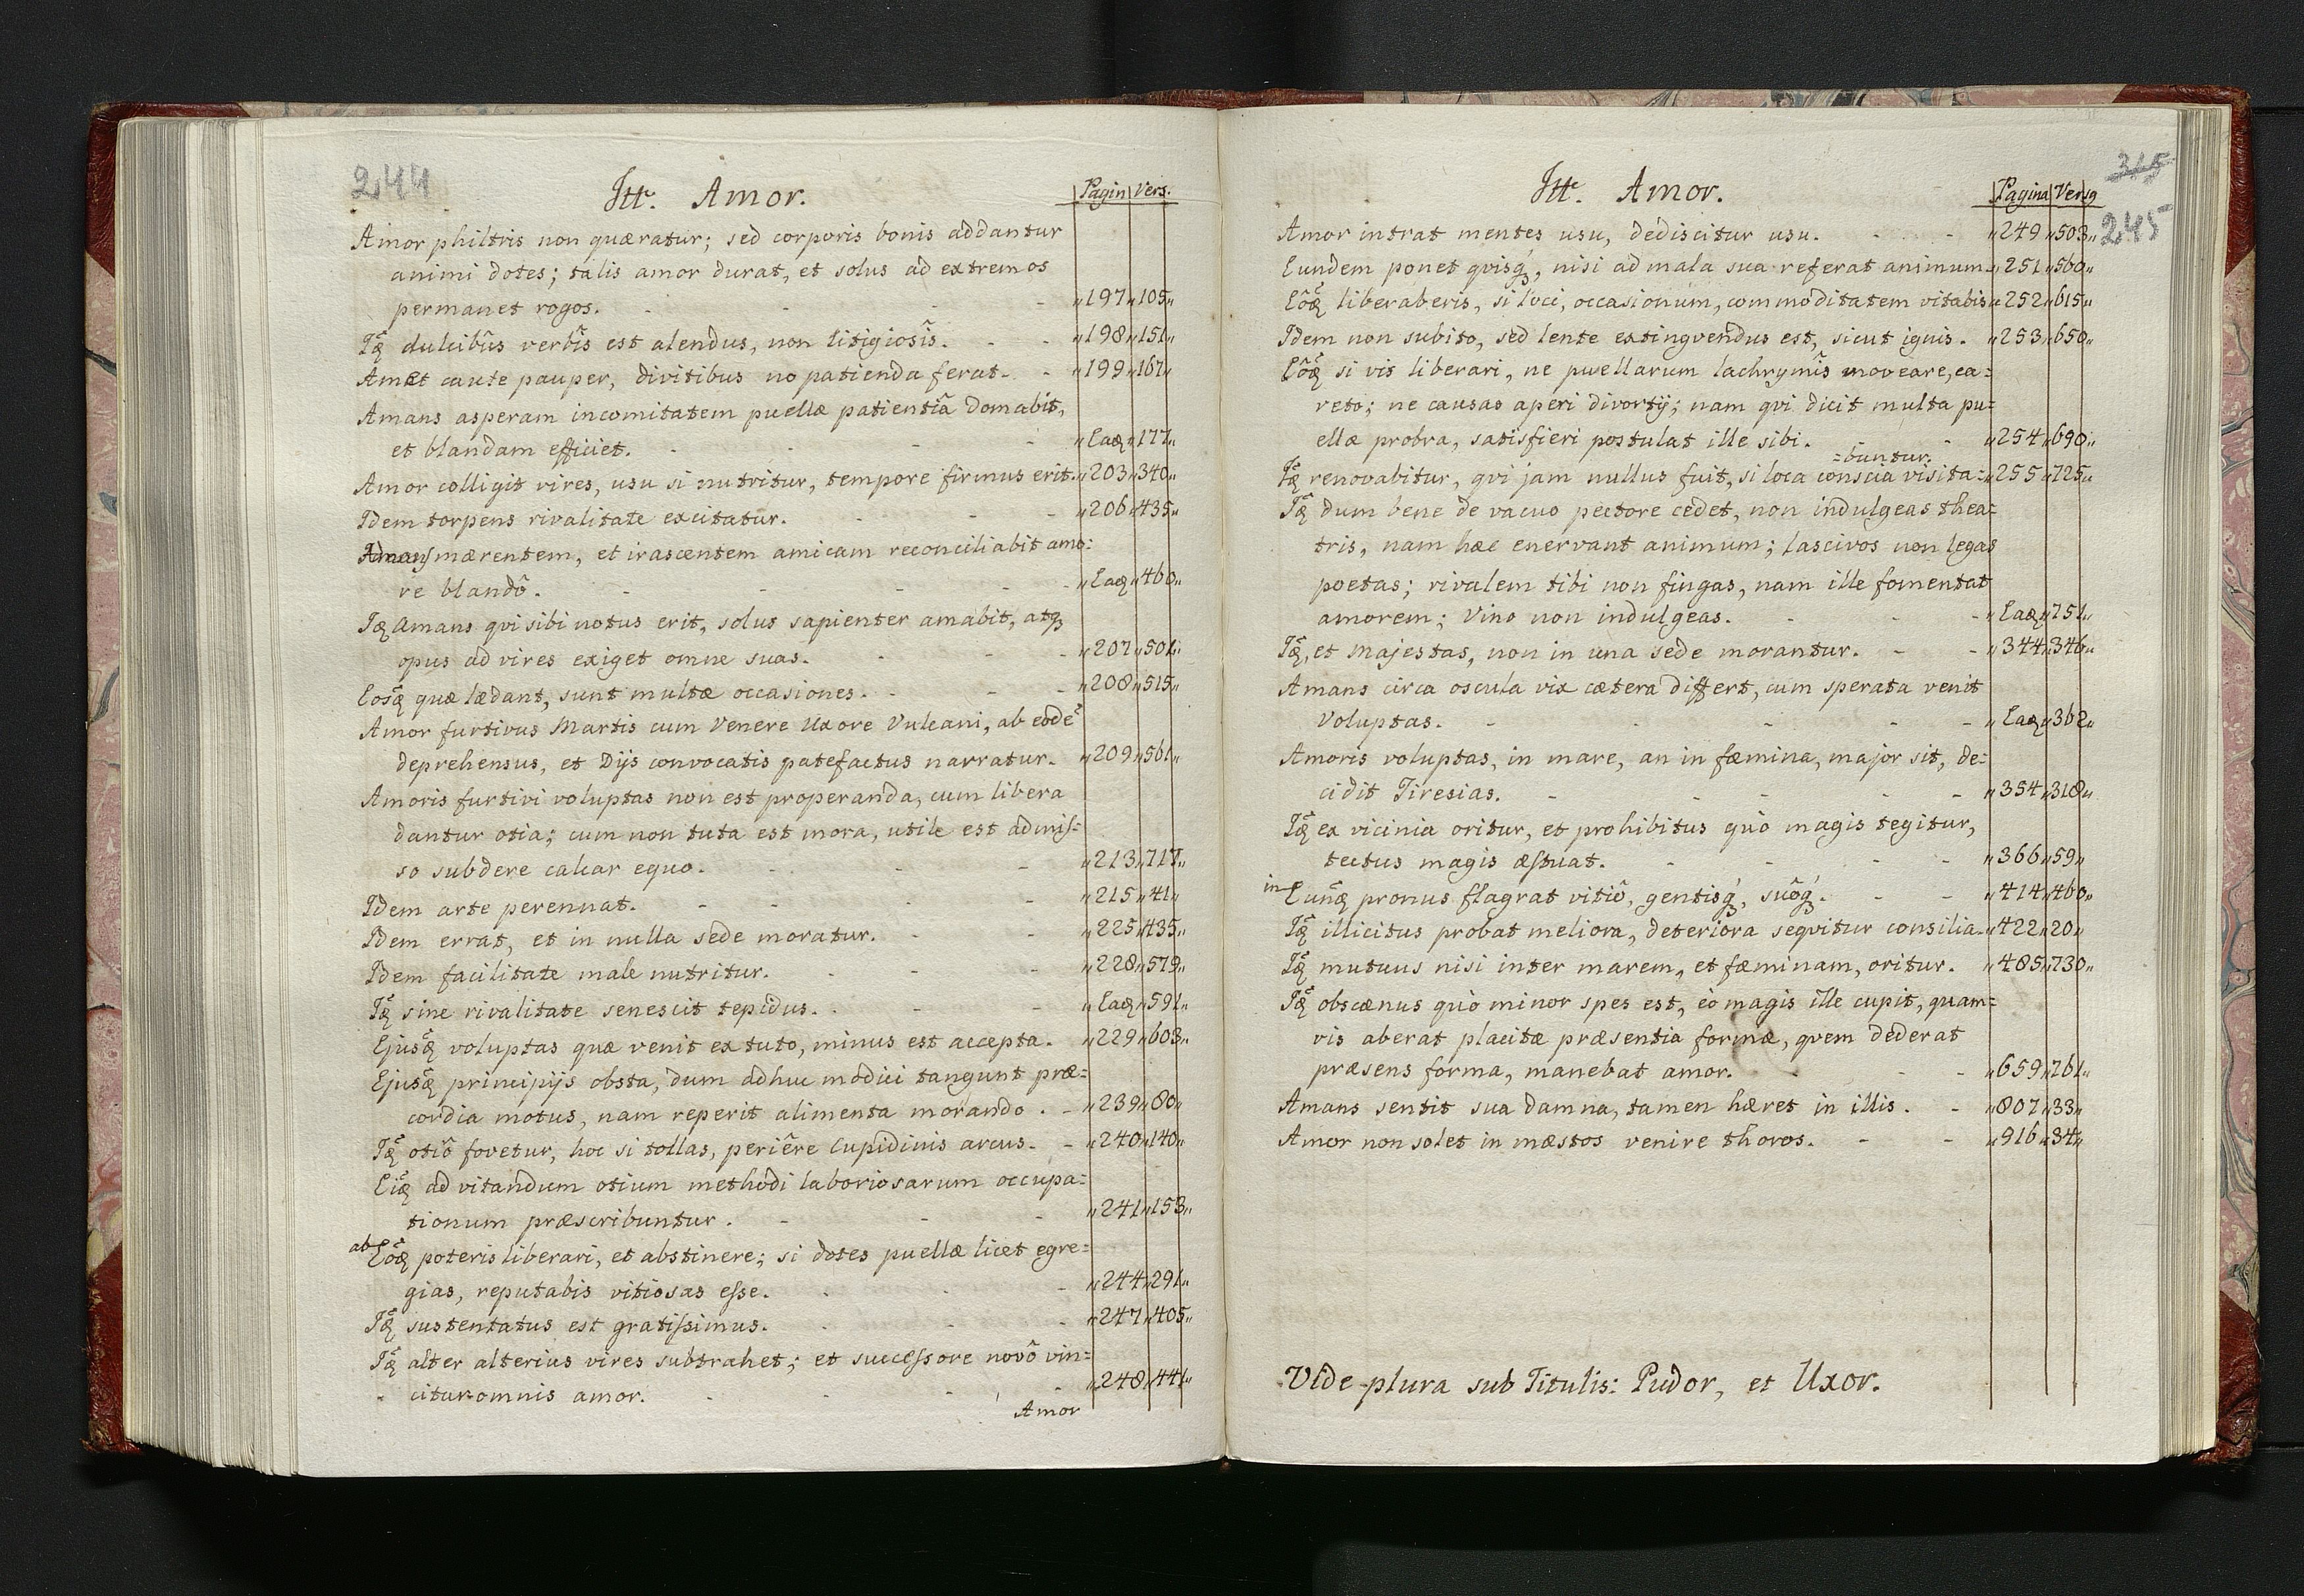 244
Itt. Amor.
Pagin Vers.
Amor philtris non quæratur; sed corporis bonis addantur
animi dotes; talis amor durat, et solus ad extremos
permanet rogos. - - - „197„105„
Iꝗ̃ dulcibûs verbîs est alendus, non litigiosîs. - - „198„151„
Amet caute pauper, divitibus no patienda ferat. - „199„167„
Amans asperam incomitatem puellæ patientiâ domabit,
et blandam efficiet. - - - - „Eaꝗ„177„
Amor colligit vires, usu si nutritur, tempore firmus erit. „203„340„
Idem torpens rivalitate excitatur. - - - „206„435„
Amans mærentem, et irascentem amicam reconciliabit amo:
re blandô. - - - - „Eaꝗ„460„
Iꝗ amans qvi sibi notus erit, solus sapienter amabit, atqꝫ
opus ad vires exiget omne suas. - - - „207„501„
Eosꝗ̃ quæ lædant, sunt multæ occasiones. - - - „208„515„
Amor furtivus Martis cum Venere Uxore Vulcani, ab eodẽ
deprehensus, et Dijs convocatis patefactus narratur. „209„561„
Amoris furtivi voluptas non est properanda, cum libera
dantur otia; cum non tuta est mora, utile est admis:
so subdere calcar equo. - - - „213„717„
Idem arte perennat. - - - - „215„41„
Idem errat, et in nulla sede moratur. - - „225„435„
Idem facilitate male nutritur. - - - „228„579„
Iꝗ̃ sine rivalitate senescit tepidus. - - - „Eaꝗ„591„
Ejusꝗ̃ voluptas quæ venit ex tuto, minus est accepta. - „229„603„
Ejusꝗ̃ principijs obsta, dum adhuc modici tangunt præ=
cordia motus, nam reperit alimenta morando. - „239„80„
Iꝗ̃ otiô fovetur, hoc si tollas, periêre Cupidinis arcus. - „240„140„
Eiꝗ̃ ad vitandum otium methodi laboriosarum occupa=
tionum præscribuntur. - - - „241„153„
ab Eôꝗ̃ poteris liberari, et abstinere; si dotes puellæ licet egre=
gias, reputabis vitiosas esse. - - - „244„291„
Iꝗ̃ sustentatus est gratissimus. - - - „247„405„
Iꝗ̃ alter alterius vires subtrahet; et successore novô vin=
citur omnis amor. - - - - „248„441„
Amor
315
245
Itt. Amor.
Pagina Versꝰ
Amor intrat mentes usu, dediscitur usu. - - „249„503„
Eundem ponet qvisqꝫ, nisi ad mala sua referat animum. „251„560„
Eôꝗ̃ liberaberis, si loci, occasionum, commoditatem vitabis „252„615„
Idem non subito, sed lente extingvendus est, sicut ignis. „253„650„
Eôꝗ̃ si vis liberari, ne puellarum lachrymîs moveare, ca=
veto; ne causas aperi divortij; nam qvi dicit multa pu=
ellæ probra, satisfieri postulat ille sibi. - - „254„690„
=buntur.
Iꝗ̃ renovabitur, qvi jam nullus fuit, si loca conscia visita= „255„725„
Iꝗ̃ dum bene de vacuo pectore cedet, non indulgeas thea=
tris, nam hæc enervant animum; lascivos non legas
poetas; rivalem tibi non fingas, nam ille fomentat
amorem; Vino non indulgeas. - - - „Eaꝗ„751„
Iꝗ̃, et Majestas, non in una sede morantur. - - „344„346„
Amans circa oscula vix cætera differt, cum sperata venit
voluptas. - - - - - „Eaꝗ„362„
Amoris voluptas, in mare, an in fæmina, major sit, de=
cidit Tiresias. - - - - „354„318„
Iꝗ̃ ex vicinia oritur, et prohibitus quò magis tegitur,
tectus magis æstuat. - - - - „366„59„
in Eunꝗ̃ pronus flagrat vitiô, gentisqꝫ, suôqꝫ. - - „414„460„
Iꝗ̃ illicitus probat meliora, deteriora seqvitur consilia. „422„20„
Iꝗ̃ mutuus nisi inter marem, et fæminam, oritur. „485„730„
Iꝗ̃ obscænus quò minor spes est, eò magis ille cupit, quam=
vis aberat placitæ præsentia formæ, qvem dederat
præsens forma, manebat amor. - - - „659„761„
Amans sentit sua damna, tamen hæret in illis. - „807„33„
Amor non solet in mæstos venire thoros. - - „916„34„
Vide plura sub Titulis: Pudor, et Uxor.